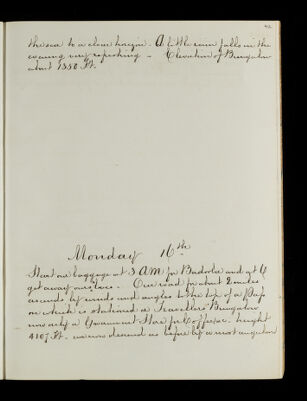 42
the sea to a clear horizon. A little rain falls in the
evening very refreshing - Elevation of Bungalow
about 1350 Ft.
Monday 16th
Start our baggage at 3 AM for Badoola and get
get away ourselves - Our road for about 2 miles
ascends by winds and angles to the top of a Pass
on which is stationed a Travellers Bungalow
and a Government Store for Coffee &c. height
4107 Ft. we now descend as before by a most